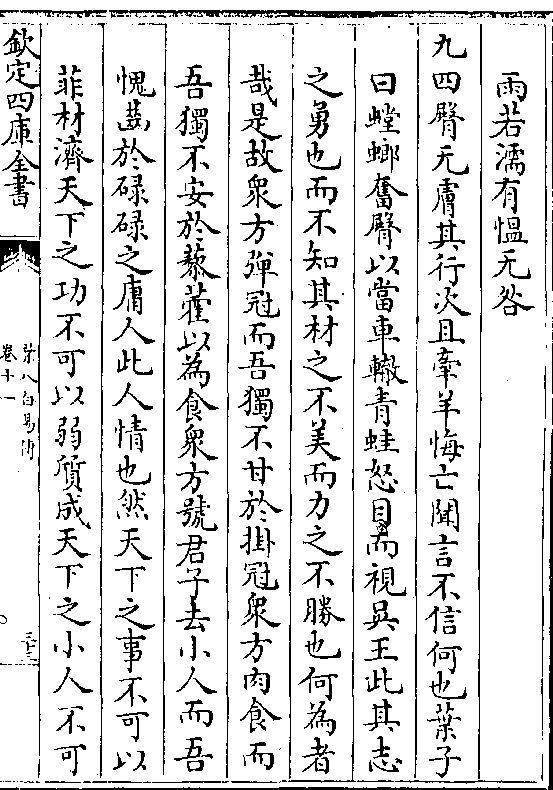 雨若濡有愠无咎
九四臀无膚其行次且牽羊悔亡聞言不信何也葉子
曰螳螂奮臂以當車轍青蛙怒目而視吳王此其志
之勇也而不知其材之不美而力之不勝也何為者
哉是故衆方彈冠而吾獨不甘於掛冠衆方肉食而
吾獨不安於藜藿以為食衆方號君子去小人而吾
愧齒於碌碌之庸人此人情也然天下之事不可以
菲材濟天下之功不可以弱質成天下之小人不可
欽定四庫全書
葉八白易傳
卷十一
三十三